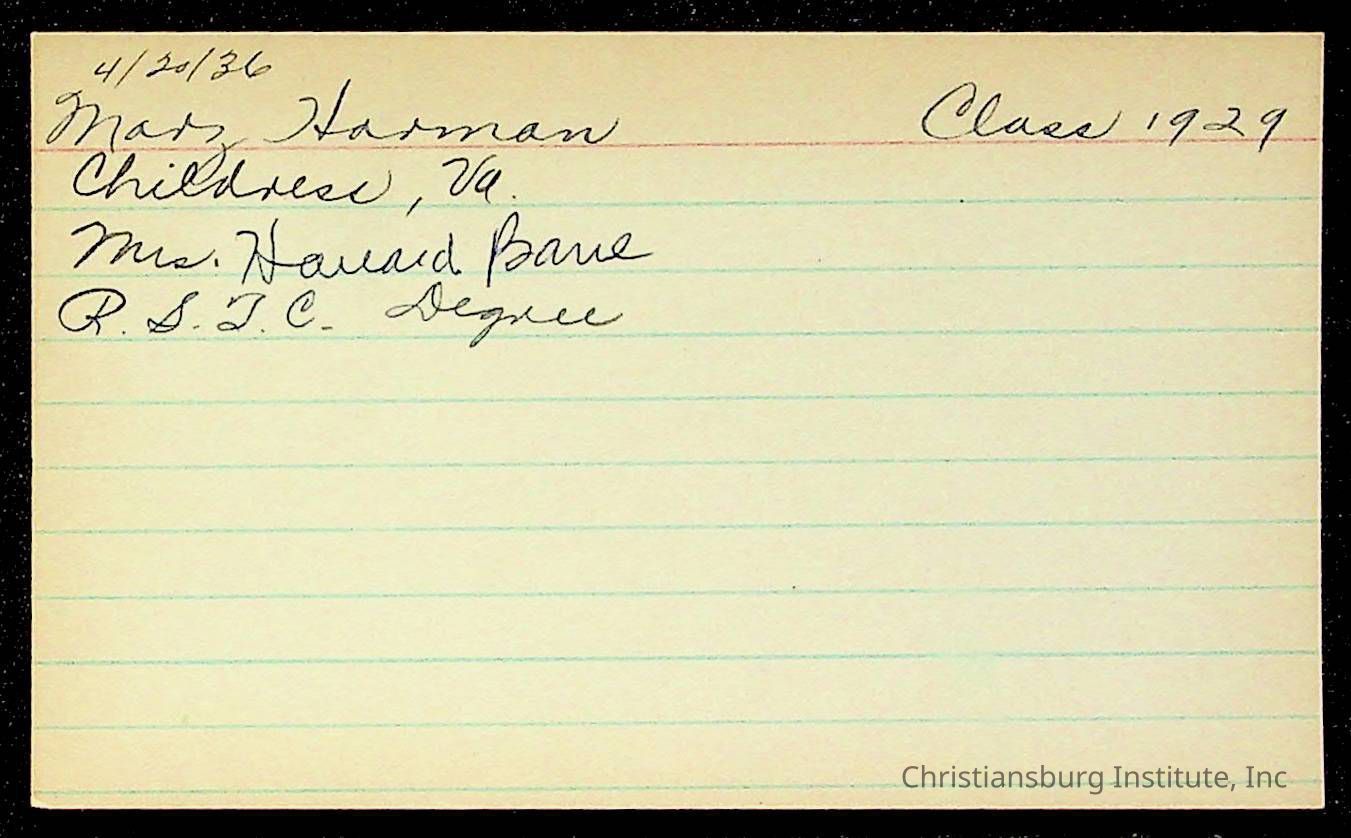 4/20/36
Mary Harman Class 1929
Childress, Va.
Mrs. Howard Bane
R. S. T. C. Degree
Christiansburg Institute, Inc